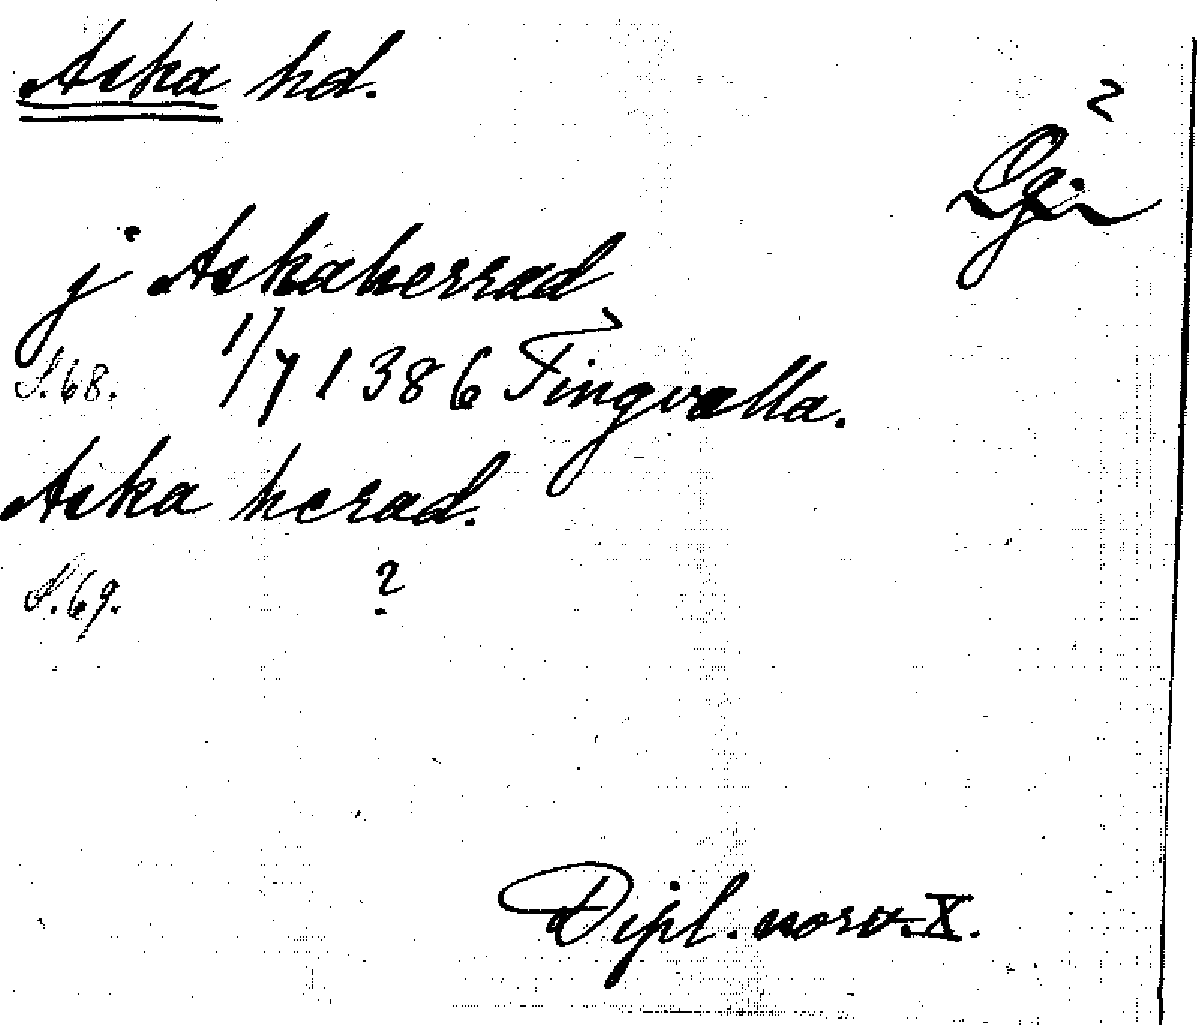 Aska hd.
2
Ög.
j Askaherrad
S. 68. 1/7 1386 Tingvalla.
Aska herad.
S. 69. ?
Dipl. norv. X.